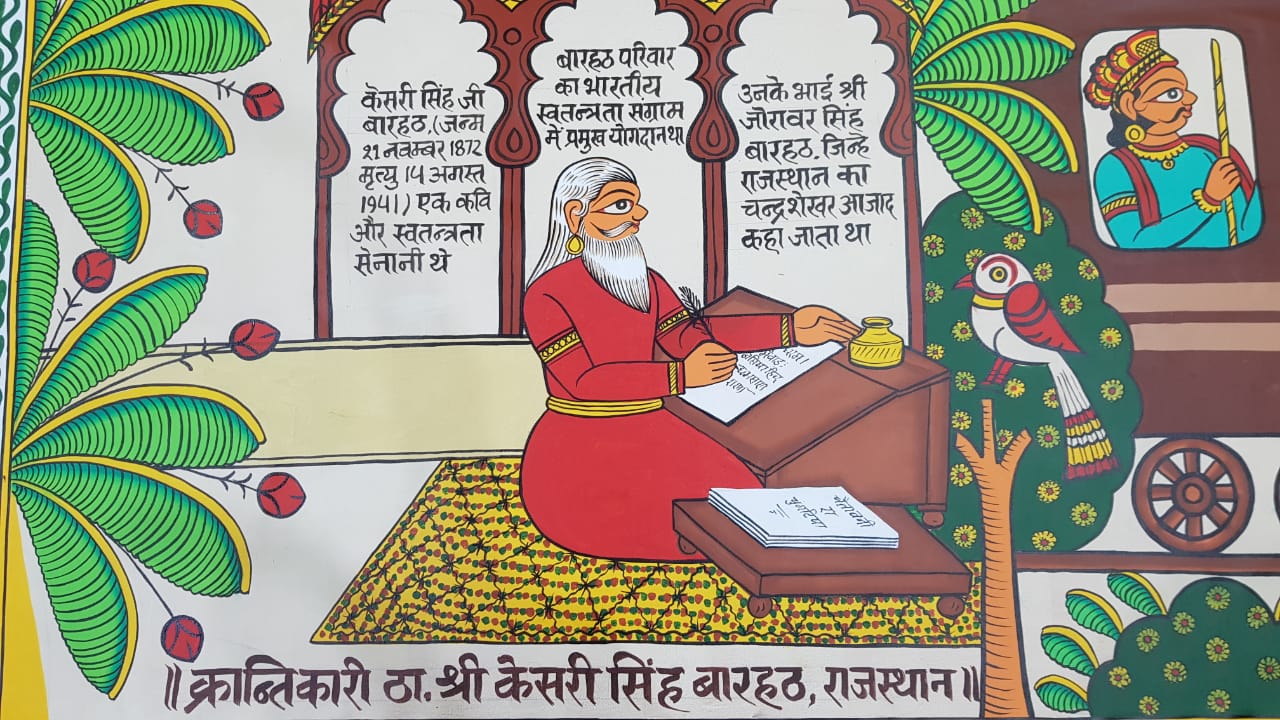 केसरी सिंह जी
बारहठ.(जन्म
21 नवम्बर 1872
मृत्यु 14 अगस्त
1941) एक कवि
और स्वतन्त्रता
सेनानी थे
बारहठ परिवार
का भारतीय
स्वतन्त्रता संग्राम
में प्रमुख योगदान था
उनके भाई श्री
जोरावर सिंह
बारहठ. जिन्हे
राजस्थान का
चन्द्रशेखर आजाद
कहा जाता था
चेतावनी
रा
चुंगटिया
॥ क्रान्तिकारी ठा. श्री केसरी सिंह बारहठ, राजस्थान ॥